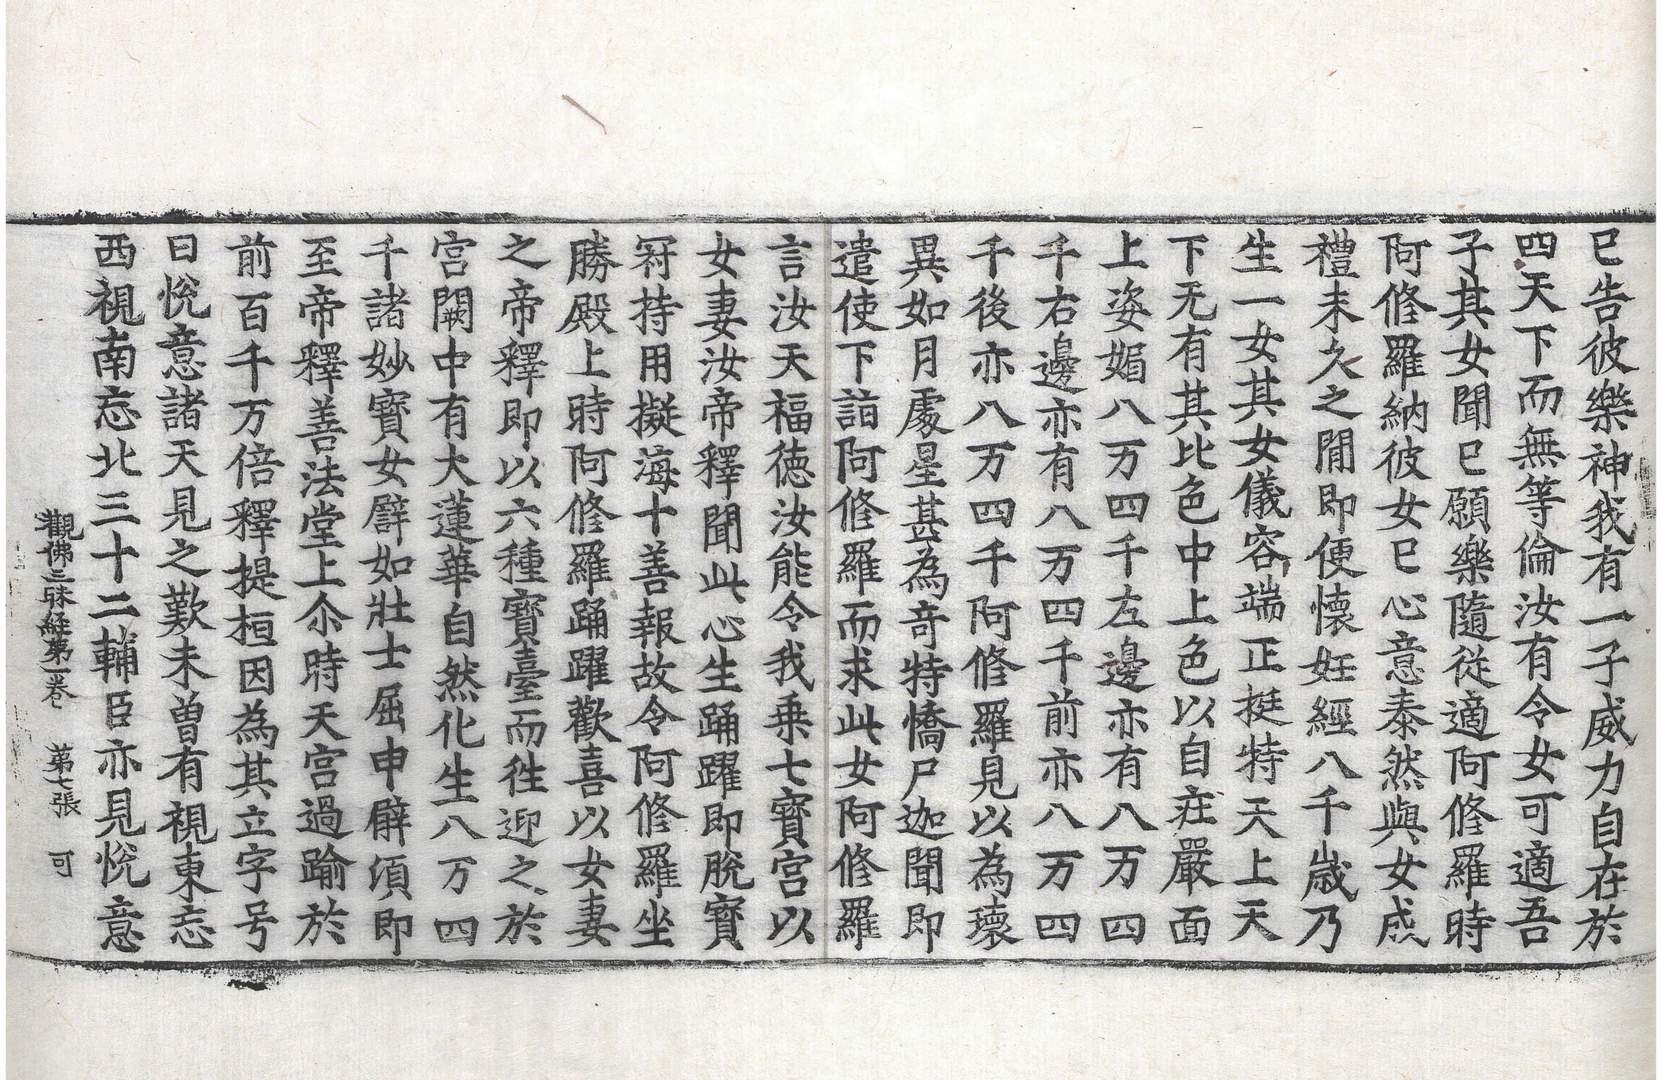 已告彼樂神我有一子威力自在於
四天下而無等倫汝有令女可適吾
子其女聞已願樂隨從適阿修羅時
阿修羅納彼女已心意泰然與女成
禮未久之間即便懷妊經八千歲乃
生一女其女儀容端正挺特天上天
下无有其比色中上色以自莊嚴面
上姿媚八万四千左邊亦有八万四
千右邊亦有八万四千前亦八万四
千後亦八万四千阿修羅見以為瓌
異如月處星甚為奇特憍尸迦聞即
遣使下詣阿修羅而求此女阿修羅
言汝天福德汝能令我乗七寶宮以
女妻汝帝釋聞此心生踊躍即脫寶
冠持用擬海十善報故令阿修羅坐
勝殿上時阿修羅踊躍歡喜以女妻
之帝釋即以六種寶臺而往迎之於
宮闕中有大蓮華自然化生八万四
千諸妙寶女譬如壯士屈申臂須即
至帝釋善法堂上尒時天宮過踰於
前百千万倍釋提桓因為其立字号
曰悅意諸天見之歎未曾有視東忘
西視南忘北三十二輔臣亦見悅意
觀佛三昧經第一卷 第七張 可